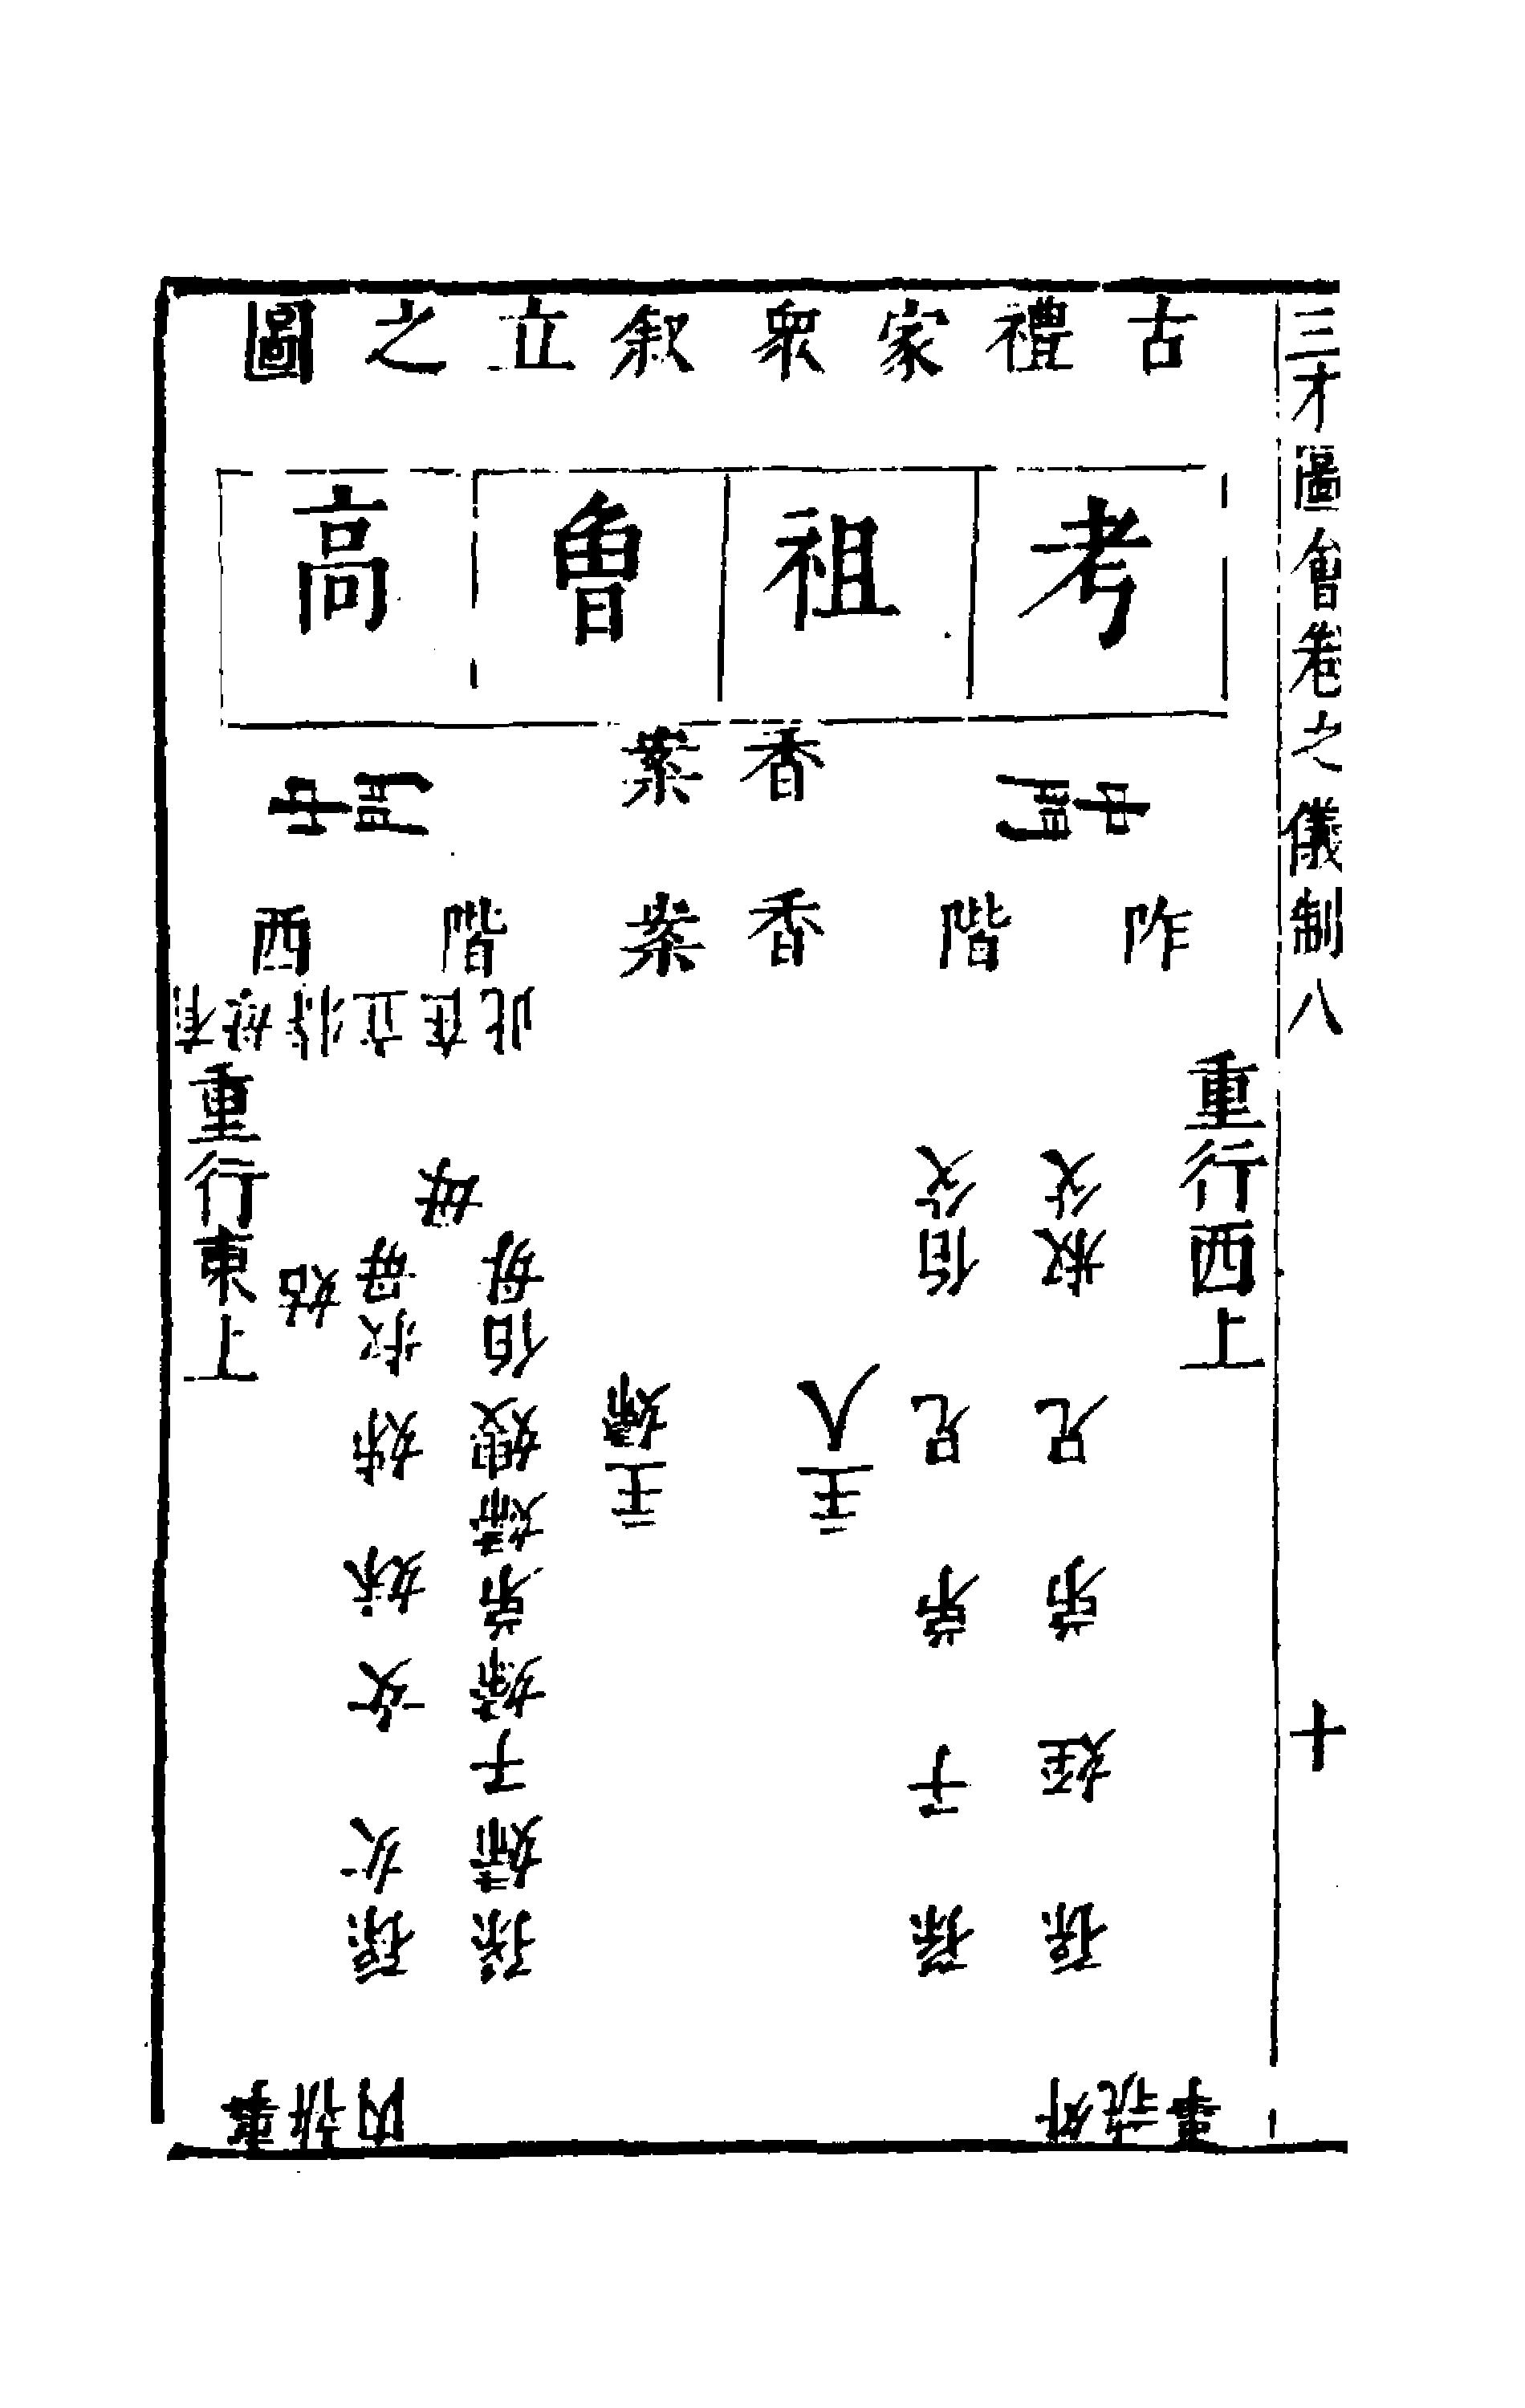 三才圖會卷之儀制八
十
古禮家衆叙立之圖
考
祖
曾
高
香案
阼階
香案
西階
立在此
重行西上
叔父
兄
弟
姪
孫
伯父
兄
弟
子
孫
主人
主婦
母
伯母
嫂
弟婦
子婦
孫婦
叔母
姊
妹
女
孫女
姑
重行東上
外執事
內執事